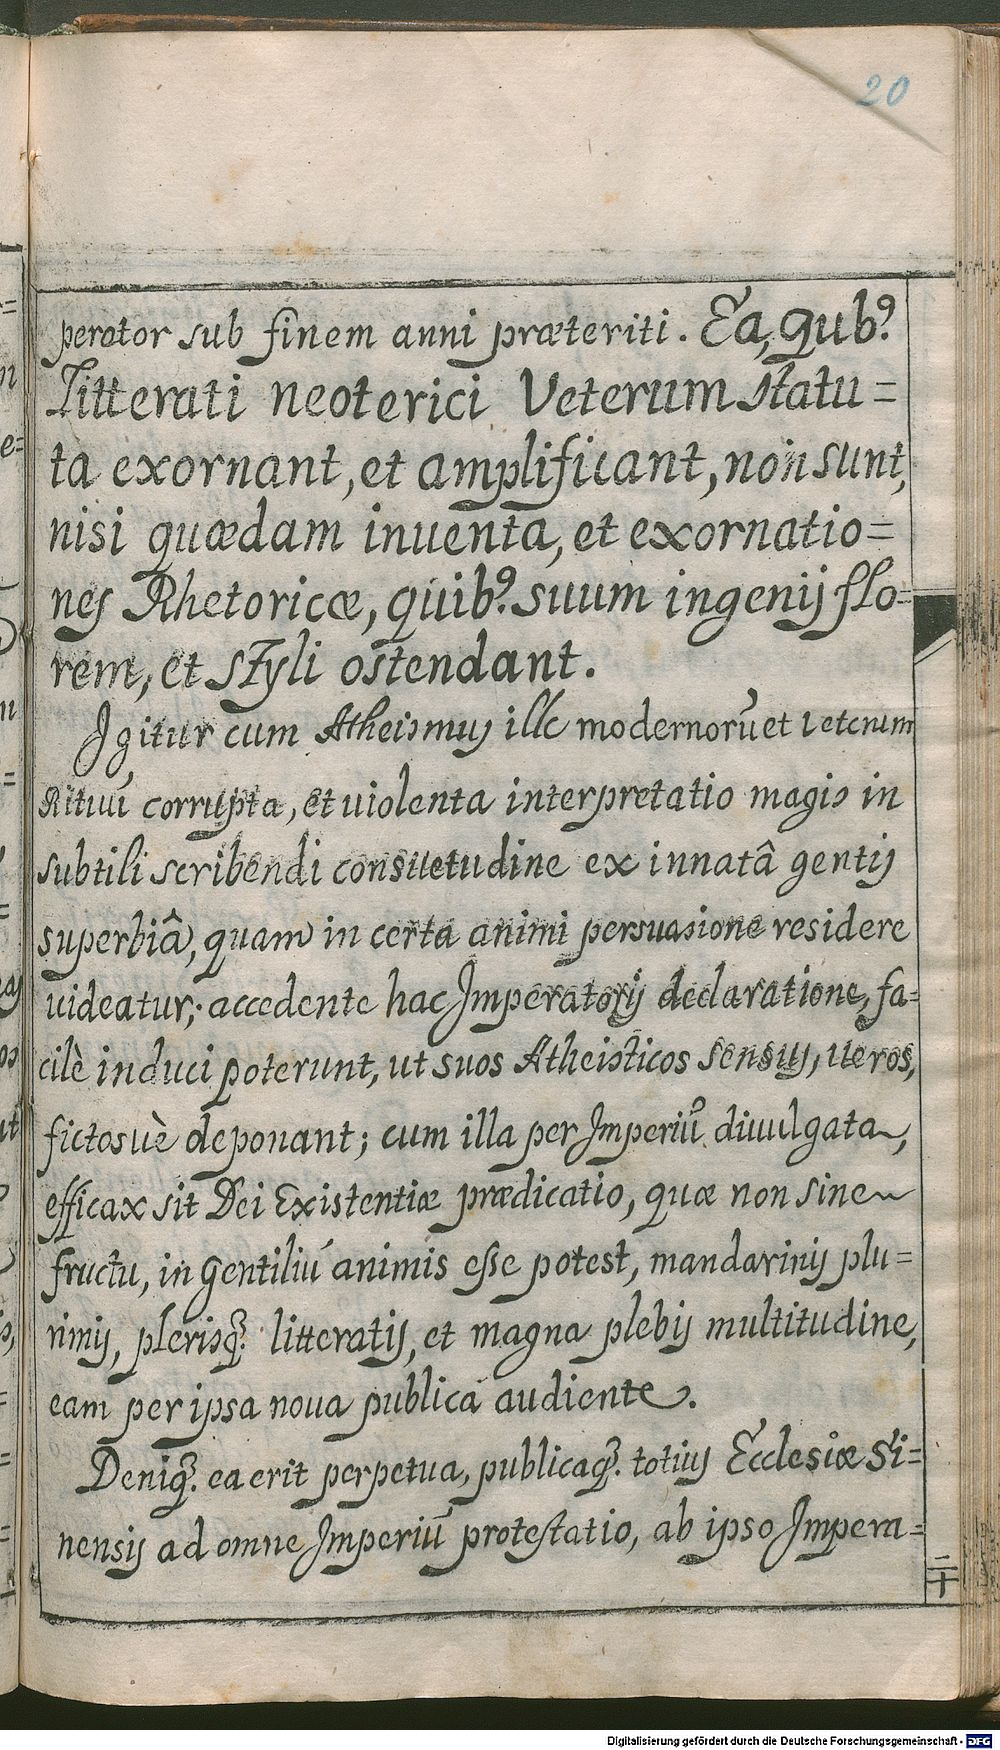 20
perator sub finem anni præteriti. Ea, qub⁹.
Litterati neoterici Veterum statu=
ta exornant, et amplificant, non sunt,
nisi quædam inuenta, et exornatio=
nes Rhetoricæ, quib⁹. suum ingenij flo=
rem, et styli ostendant.
Igitur cum Atheismus ille modernorū et Veterum
Rituū corrupta, et violenta interpretatio magis in
subtili scribendi consuetudine ex innatâ gentis
superbiâ, quam in certa animi persuasione residere
uideatur; accedente hac Imperatoris declaratione, fa=
cilè induci poterunt, ut suos Atheisticos sensus, ueros,
fictosuè deponant; cum illa per Imperiū diuulgata,
efficax sit Dei Existentiæ prædicatio, quæ non sine
fructu, in gentiliū animis esse potest, mandarinis plu=
rimis, plerisq₃. litteratis, et magna plebis multitudine,
eam per ipsa noua publica audiente.
Deniq₃. ea erit perpetua, publicaq₃. totius Ecclesiæ Si=
nensis ad omne Imperiū protestatio, ab ipso Impera=
二十
Digitalisierung gefördert durch die Deutsche Forschungsgemeinschaft - DFG